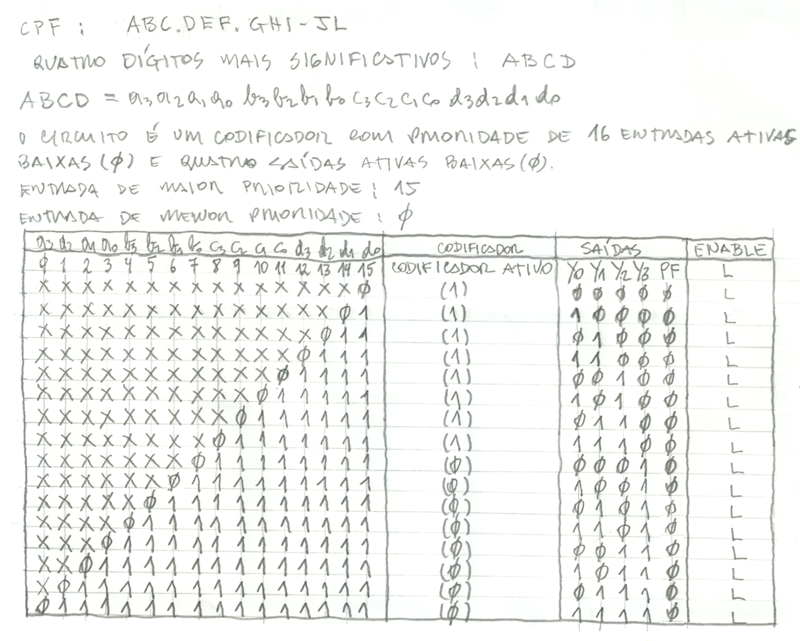 CPF : ABC.DEF.GHI-JL
QUATRO DÍGITOS MAIS SIGNIFICATIVOS : ABCD
ABCD = a3 a2 a1 a0 b3 b2 b1 b0 c3 c2 c1 c0 d3 d2 d1 d0
O CIRCUITO É UM CODIFICADOR COM PRIORIDADE DE 16 ENTRADAS ATIVAS
BAIXAS (φ) E QUATRO SAÍDAS ATIVAS BAIXAS (φ).
ENTRADA DE MAIOR PRIORIDADE : 15
ENTRADA DE MENOR PRIORIDADE : φ
a3 a2 a1 a0 b3 b2 b1 b0 c3 c2 c1 c0 d3 d2 d1 d0 CODIFICADOR SAÍDAS ENABLE
φ 1 2 3 4 5 6 7 8 9 10 11 12 13 14 15 CODIFICADOR ATIVO Y0 Y1 Y2 Y3 PF L
X X X X X X X X X X X X X X X φ (1) φ φ φ φ φ L
X X X X X X X X X X X X X X φ 1 (1) 1 φ φ φ φ L
X X X X X X X X X X X X X φ 1 1 (1) φ 1 φ φ φ L
X X X X X X X X X X X X φ 1 1 1 (1) 1 1 φ φ φ L
X X X X X X X X X X X φ 1 1 1 1 (1) φ φ 1 φ φ L
X X X X X X X X X X φ 1 1 1 1 1 (1) 1 φ 1 φ φ L
X X X X X X X X X φ 1 1 1 1 1 1 (1) φ 1 1 φ φ L
X X X X X X X X φ 1 1 1 1 1 1 1 (1) 1 1 1 φ φ L
X X X X X X X φ 1 1 1 1 1 1 1 1 (φ) φ φ φ 1 φ L
X X X X X X φ 1 1 1 1 1 1 1 1 1 (φ) 1 φ φ 1 φ L
X X X X X φ 1 1 1 1 1 1 1 1 1 1 (φ) φ 1 φ 1 φ L
X X X X φ 1 1 1 1 1 1 1 1 1 1 1 (φ) 1 1 φ 1 φ L
X X X φ 1 1 1 1 1 1 1 1 1 1 1 1 (φ) φ φ 1 1 φ L
X X φ 1 1 1 1 1 1 1 1 1 1 1 1 1 (φ) 1 φ 1 1 φ L
X φ 1 1 1 1 1 1 1 1 1 1 1 1 1 1 (φ) φ 1 1 1 φ L
φ 1 1 1 1 1 1 1 1 1 1 1 1 1 1 1 (φ) 1 1 1 1 φ L